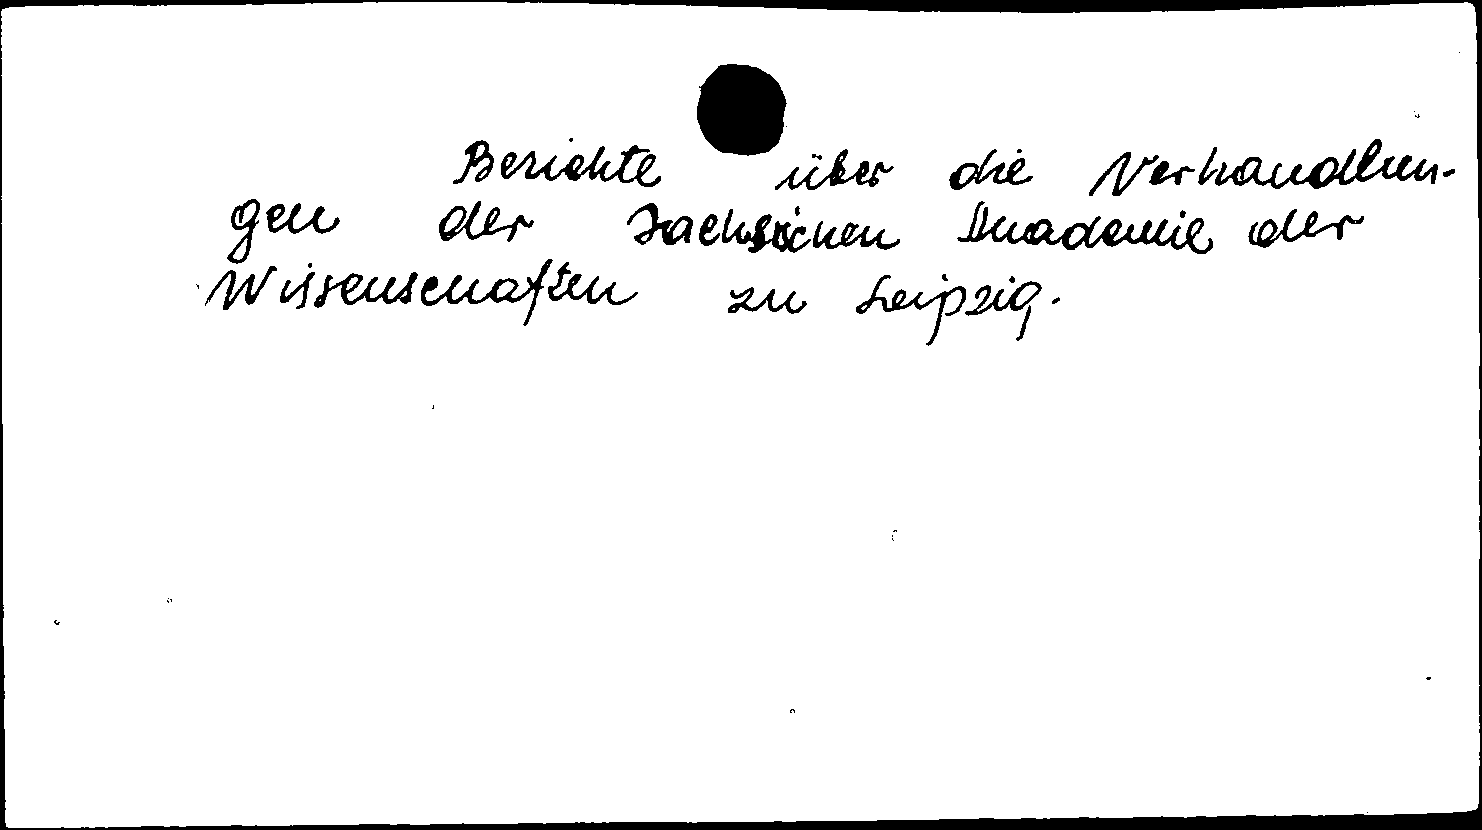 Berichte über die Verhandlun-
gen der Sachsischen Akademie der
Wissenschaften zu Leipzig.